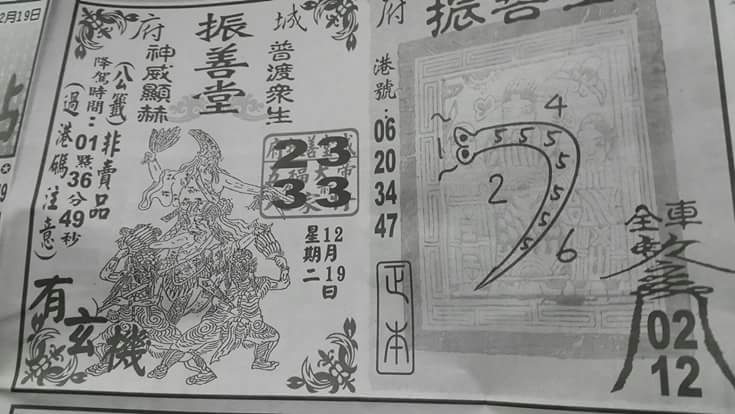 2月19日
府城
振善堂
神威顯赫
普渡眾生
(公籤)
降駕時間:01點36分49秒
(過港碼注意)
非賣品
23
33
12月19日
星期二
有玄機
府
振善堂
港號:
06
20
34
47
正本
4
5 5 5 5 5 5 5 5
2
6
全車
02
12